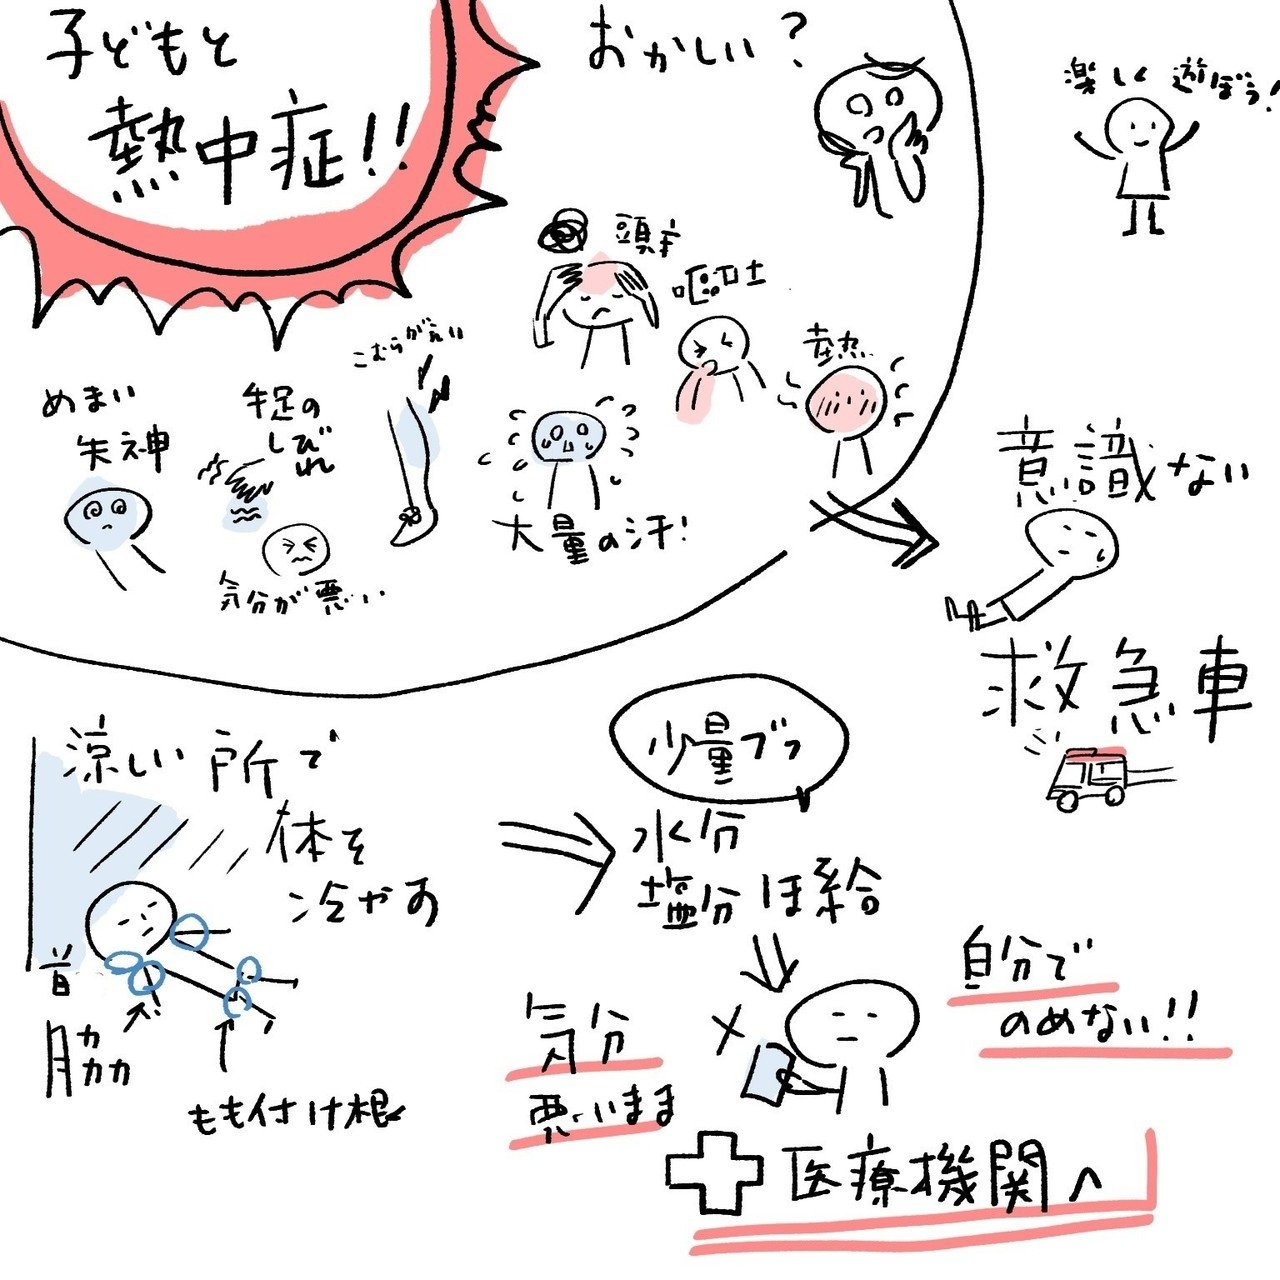 子どもと
熱中症!!
おかしい?
楽しく遊ぼう!
頭痛
嘔吐
発熱
こむらがえり
めまい
失神
手足の
しびれ
気分が悪い
大量の汗!
意識ない
救急車
涼しい所で
体を
冷やす
首
脇
もも付け根
少量ずつ
水分
塩分ほ給
自分で
のめない!!
気分
悪いまま
医療機関へ